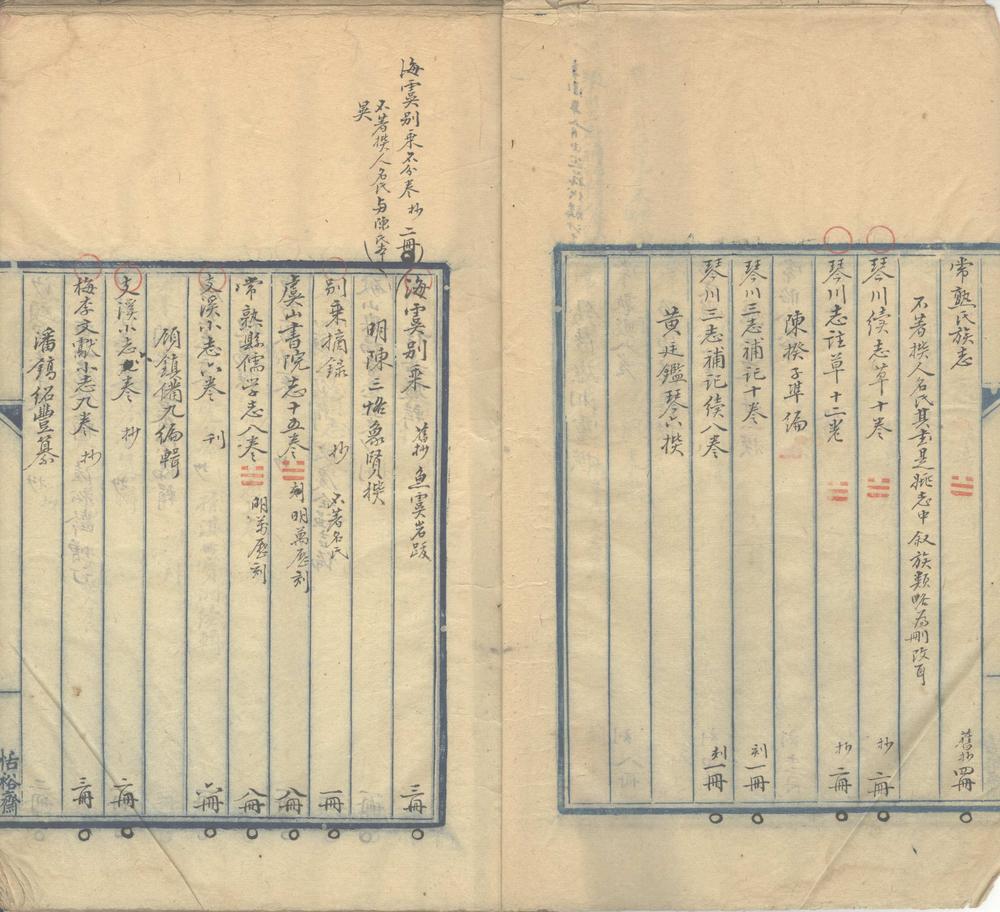 常熟氏族志 舊抄 四冊
不著撰人名氏其書是姚志中叙族類略爲刪改耳
琴川续志草十卷 抄 二冊
琴川志註草十二卷 抄 二冊
陳揆子準编
琴川三志補記十卷 刻 一冊
琴川三志補記续八卷 刻 一冊
黄廷鑑琴六撰
海虞别乘不分卷 抄 二冊
不著撰人名氏与陳氏
吴
海虞别乘 舊抄 魚虞岩跋 三冊
明陳三恪象賢撰
别乘摘録 抄 不著名氏 一冊
虞山書院志十五卷 刻 明萬歷刻 八冊
常熟縣儒学志八卷 明萬歷刻 八冊
支溪小志六卷 刊 六冊
顾鎮備九编輯
支溪小志 卷 抄 二冊
梅李文獻小志九卷 抄 三冊
潘鎬绍豐纂
恬裕齋